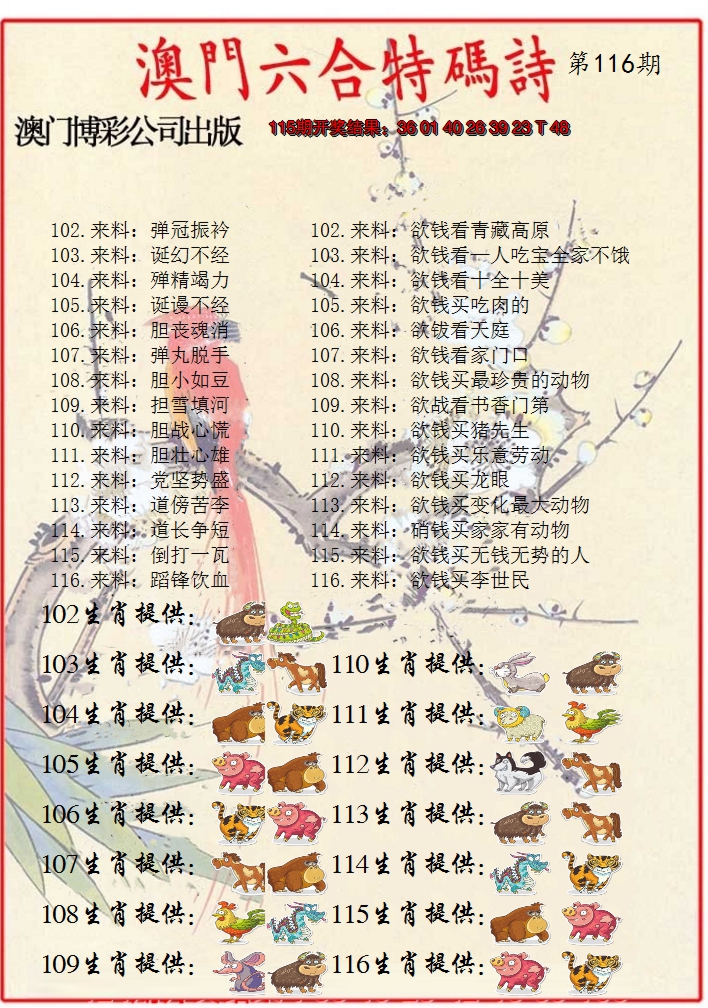 澳門六合特碼詩 第116期
澳门博彩公司出版 115期开奖结果：36 01 40 26 39 23 T 46
102.来料：弹冠振衿 102.来料：欲钱看青藏高原
103.来料：诞幻不经 103.来料：欲钱看一人吃宝全家不饿
104.来料：殚精竭力 104.来料：欲钱看十全十美
105.来料：诞谩不经 105.来料：欲钱买吃肉的
106.来料：胆丧魂消 106.来料：欲钹看天庭
107.来料：弹丸脱手 107.来料：欲钱看家门口
108.来料：胆小如豆 108.来料：欲钱买最珍贵的动物
109.来料：担雪填河 109.来料：欲战看书香门第
110.来料：胆战心慌 110.来料：欲钱买猪先生
111.来料：胆壮心雄 111.来料：欲钱买乐意劳动
112.来料：党坚势盛 112.来料：欲钱买龙眼
113.来料：道傍苦李 113.来料：欲钱买变化最大动物
114.来料：道长争短 114.来料：硝钱买家家有动物
115.来料：倒打一瓦 115.来料：欲钱买无钱无势的人
116.来料：蹈锋饮血 116.来料：欲钱买李世民
102生肖提供：
103生肖提供： 110生肖提供：
104生肖提供： 111生肖提供：
105生肖提供： 112生肖提供：
106生肖提供： 113生肖提供：
107生肖提供： 114生肖提供：
108生肖提供： 115生肖提供：
109生肖提供： 116生肖提供：